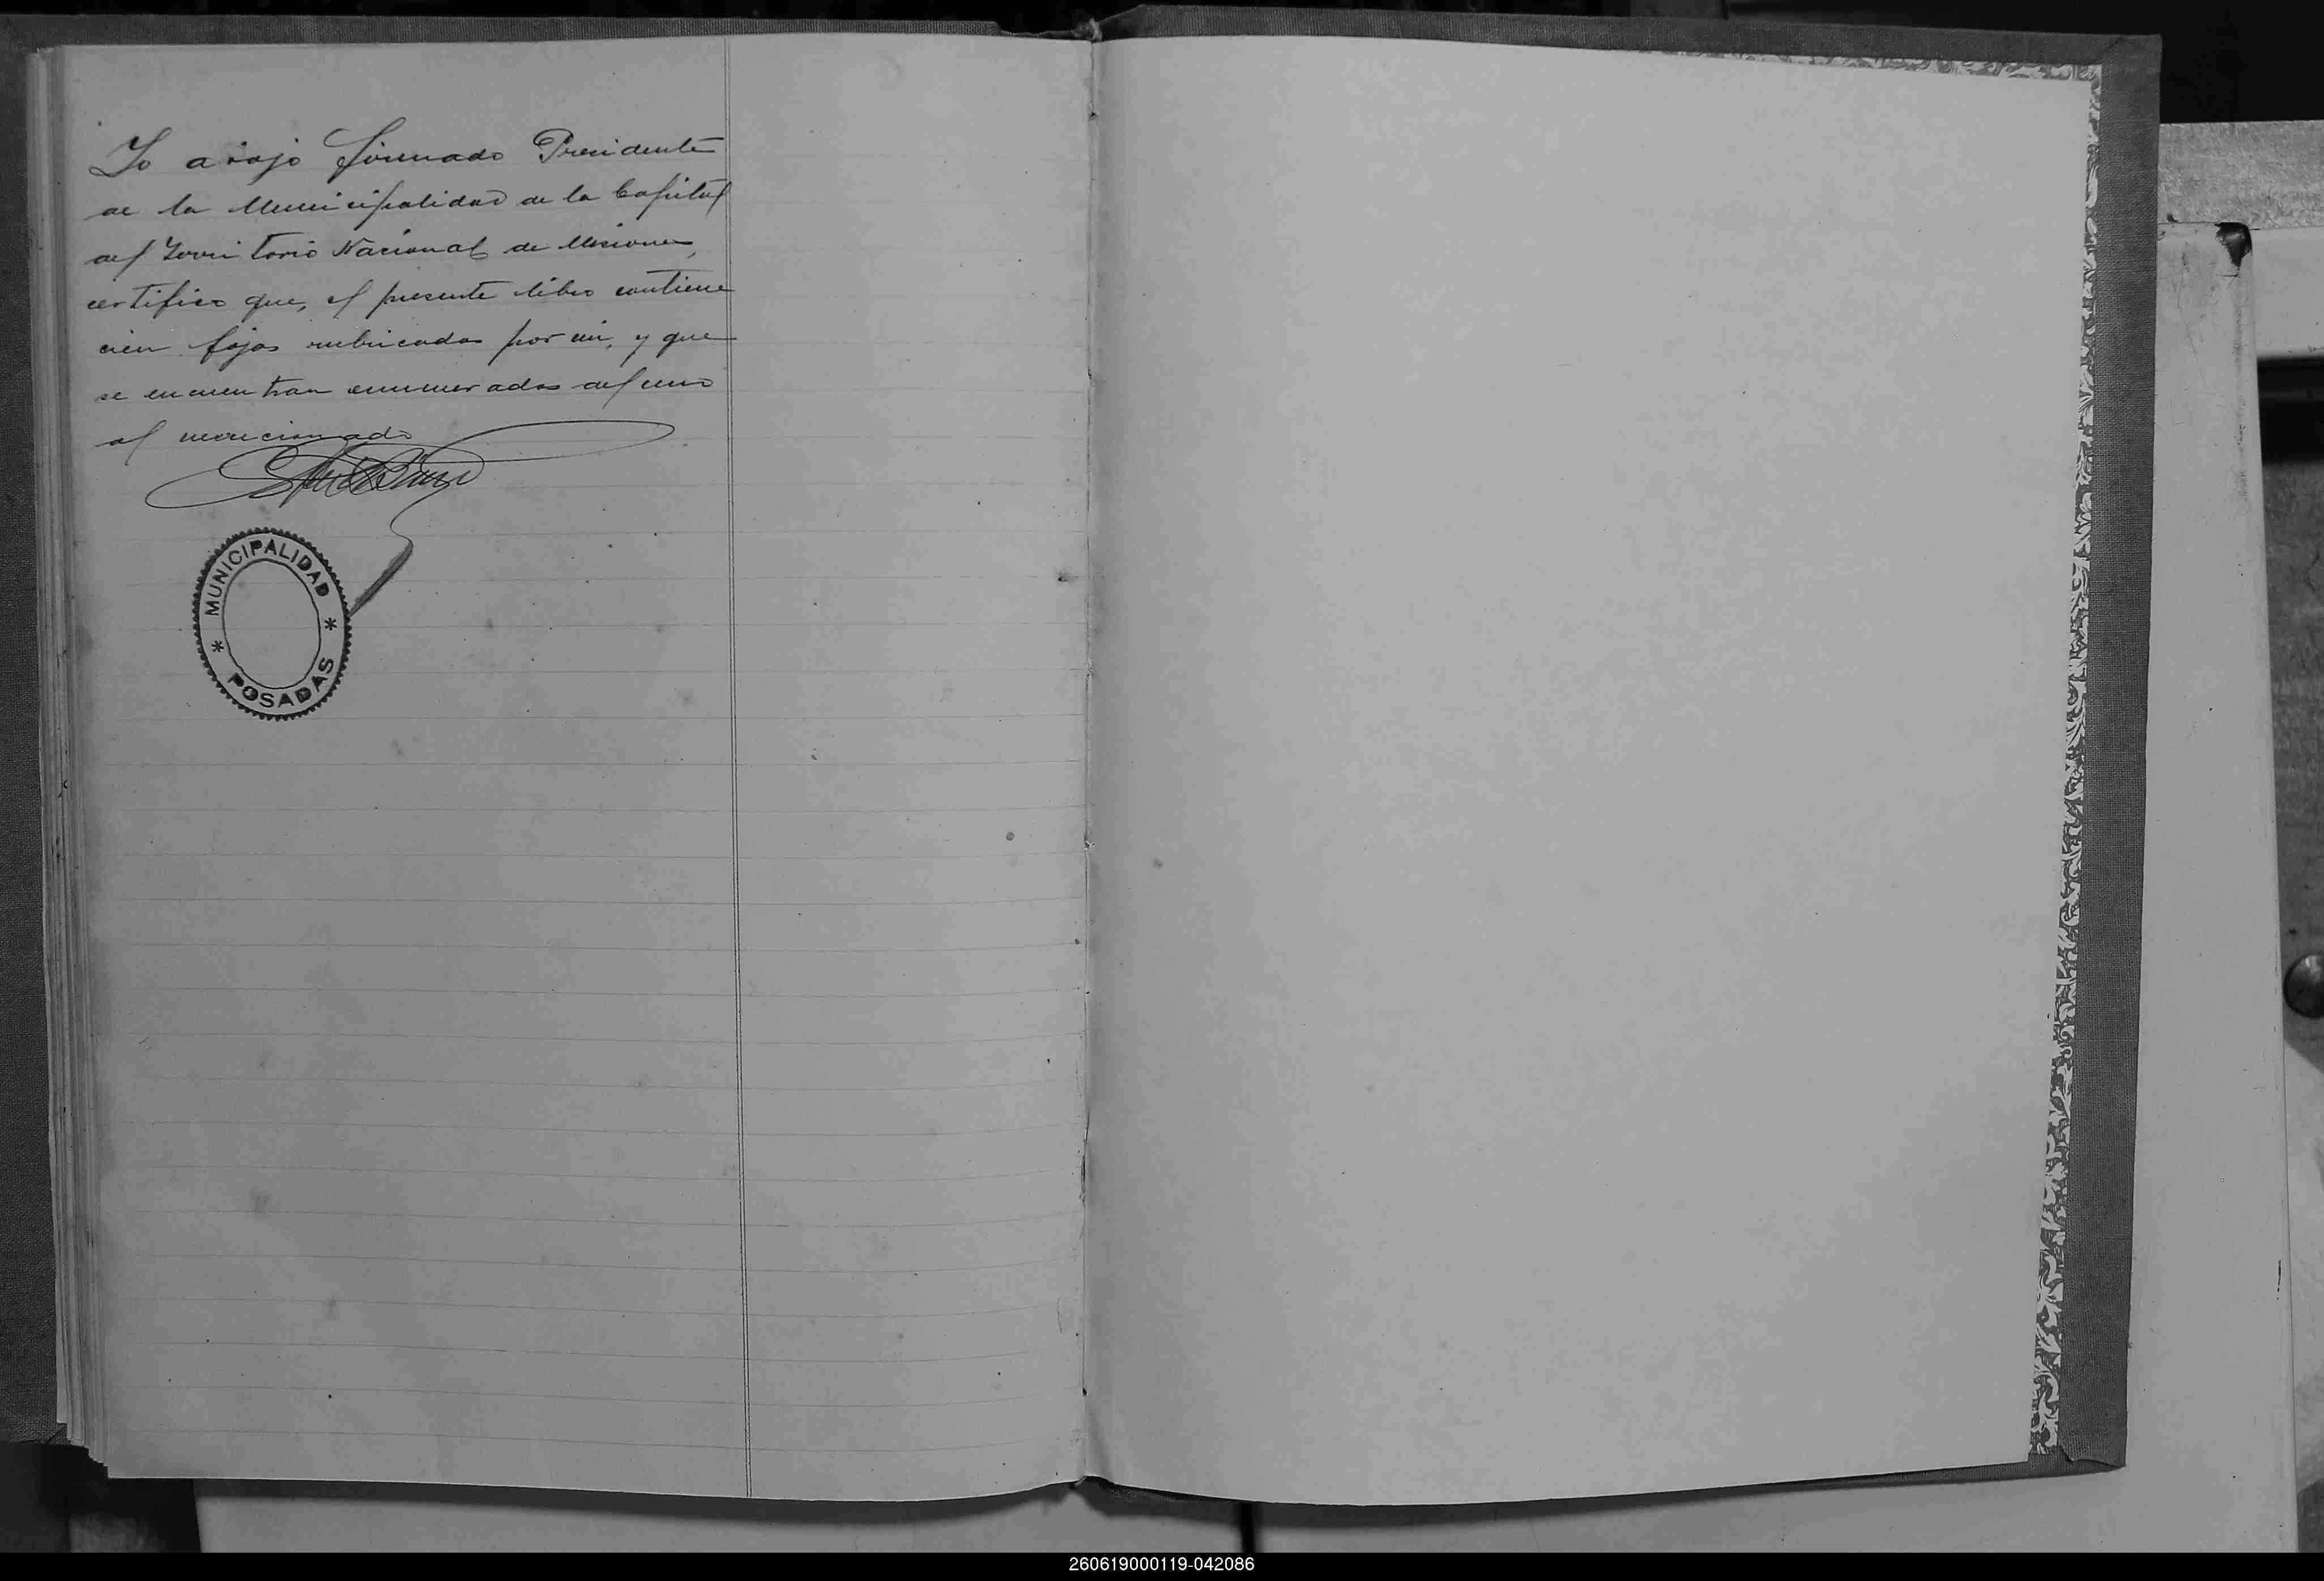 Yo abajo firmado Presidente
de la Municipalidad de la Capital
del Territorio Nacional de Misiones,
certifico que, el presente libro contiene
cien fojas rubricadas por mi, y que
se encuentran enumeradas del uno
al mencionado
MUNICIPALIDAD
POSADAS
260619000119-042086